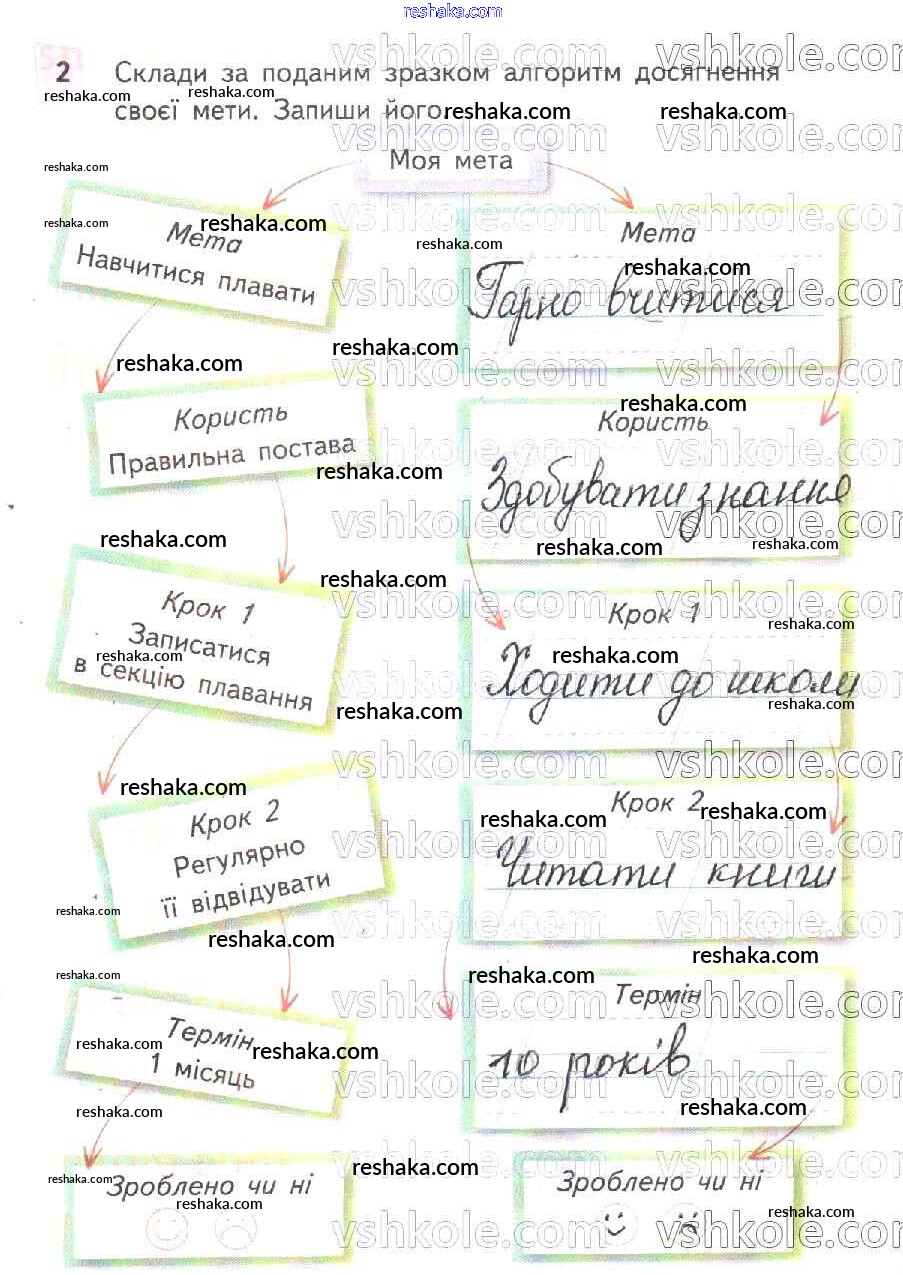 reshaka.com
2 Склади за поданим зразком алгоритм досягнення
своєї мети. Запиши його.
Моя мета
Мета
Навчитися плавати
Користь
Правильна постава
Крок 1
Записатися
в секцію плавання
Крок 2
Регулярно
її відвідувати
Термін
1 місяць
Зроблено чи ні
Мета
Гарно вчитися
Користь
Здобувати знання
Крок 1
Ходити до школи
Крок 2
Читати книги
Термін
10 років
Зроблено чи ні
vshkole.com